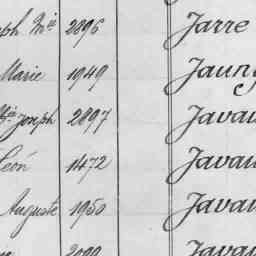 ph Mie 2896 Jarre
Marie 1949 Jaun
Mie Joseph 2897 Java
Léon 1472 Java
Auguste 1950 Java
2099 Java